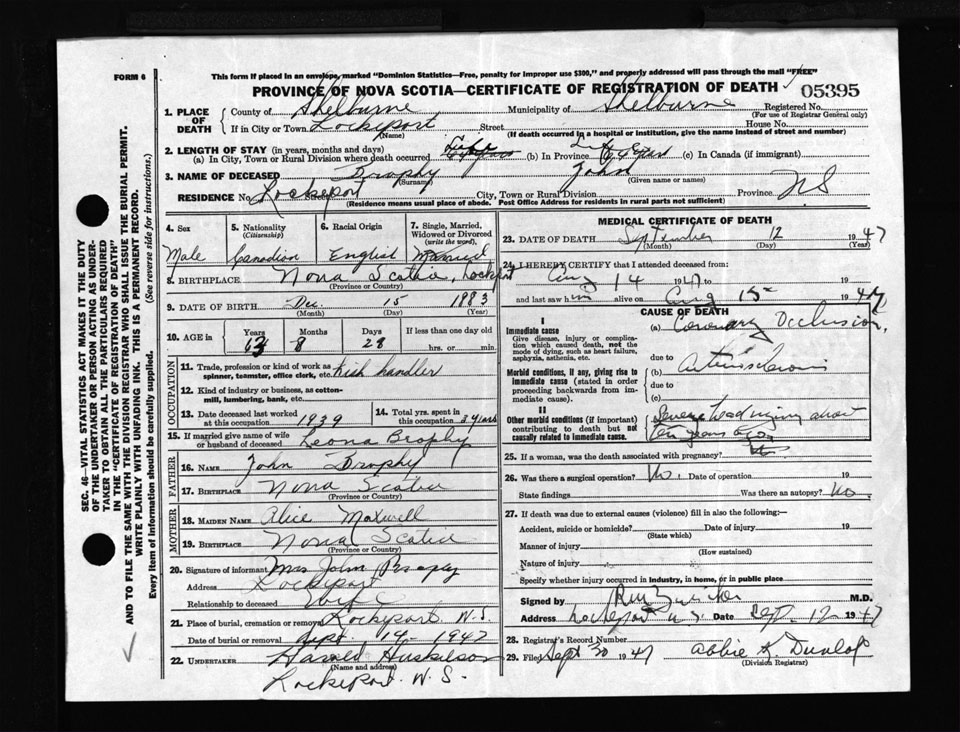 FORM 6
This form if placed in an envelope, marked "Dominion Statistics—Free, penalty for improper use $300," and properly addressed will pass through the mail "FREE"
PROVINCE OF NOVA SCOTIA—CERTIFICATE OF REGISTRATION OF DEATH
05395
1. PLACE OF DEATH
County of Shelburne Municipality of Shelburne Registered No.
(For use of Registrar General only)
If in City or Town Lockeport Street House No.
(Name) (If death occurred in a hospital or institution, give the name instead of street and number)
2. LENGTH OF STAY (in years, months and days)
(a) In City, Town or Rural Division where death occurred Life (b) In Province Life (c) In Canada (if immigrant)
3. NAME OF DECEASED Brophy John
(Surname) (Given name or names)
RESIDENCE No. Lockeport Street City, Town or Rural Division Province N.S
(Residence means usual place of abode. Post Office Address for residents in rural parts not sufficient)
4. Sex
Male
5. Nationality
(Citizenship)
Canadian
6. Racial Origin
English
7. Single, Married, Widowed or Divorced
(write the word)
Married
8. BIRTHPLACE Nova Scotia, Lockport
(Province or Country)
9. DATE OF BIRTH Dec. 15 1883
(Month) (Day) (Year)
10. AGE
Years Months Days If less than one day old
63 8 28 hrs. or min.
OCCUPATION
11. Trade, profession or kind of work as spinner, teamster, office clerk, etc. Fish handler
12. Kind of industry or business, as cotton-mill, lumbering, bank, etc.
13. Date deceased last worked at this occupation 1939
14. Total yrs. spent in this occupation
15. If married give name of wife or husband of deceased Leona Brophy
FATHER
16. NAME John Brophy
17. BIRTHPLACE Nova Scotia
(Province or Country)
MOTHER
18. MAIDEN NAME Alice Maxwell
19. BIRTHPLACE Nova Scotia
(Province or Country)
20. Signature of informant Mrs John Brophy
Address Lockeport
Relationship to deceased Wife
21. Place of burial, cremation or removal Lockeport N.S.
Date of burial or removal Sept. 14 1947
22. UNDERTAKER Harold Huskilson
(Name and address)
Lockeport. N.S.
MEDICAL CERTIFICATE OF DEATH
23. DATE OF DEATH September 12 1947
(Month) (Day) (Year)
24. I HEREBY CERTIFY that I attended deceased from:
Aug 14 1947 to 19
and last saw him alive on Aug 15 1947
CAUSE OF DEATH
I
Immediate cause
Give disease, injury or complication which caused death, not the mode of dying, such as heart failure, asphyxia, asthenia, etc.
(a) Coronary Occlusion,
due to
Morbid conditions, if any, giving rise to immediate cause (stated in order proceeding backwards from immediate cause).
(b) Arteriosclerosis
due to
(c)
II
Other morbid conditions (if important) contributing to death but not causally related to immediate cause.
Severe head injury about
ten years ago
25. If a woman, was the death associated with pregnancy?
26. Was there a surgical operation? No. Date of operation 19
State findings Was there an autopsy? No.
27. If death was due to external causes (violence) fill in also the following:—
Accident, suicide or homicide? Date of injury 19
(State which)
Manner of injury
(How sustained)
Nature of injury
Specify whether injury occurred in industry, in home, or in public place
Signed by M.D.
Address Lockeport N.S. Date Sept. 12 1947
28. Registrar's Record Number
29. Filed Sept 30 1947 Abbie K. Dunlop
(Division Registrar)
SEC. 46—VITAL STATISTICS ACT MAKES IT THE DUTY
OF THE UNDERTAKER OR PERSON ACTING AS UNDERTAKER TO OBTAIN ALL THE PARTICULARS REQUIRED
IN THE "CERTIFICATE OF REGISTRATION OF DEATH"
AND TO FILE THE SAME WITH THE DIVISION REGISTRAR WHO SHALL ISSUE THE BURIAL PERMIT.
WRITE PLAINLY WITH UNFADING INK. THIS IS A PERMANENT RECORD.
Every item of information should be carefully supplied. (See reverse side for instructions.)